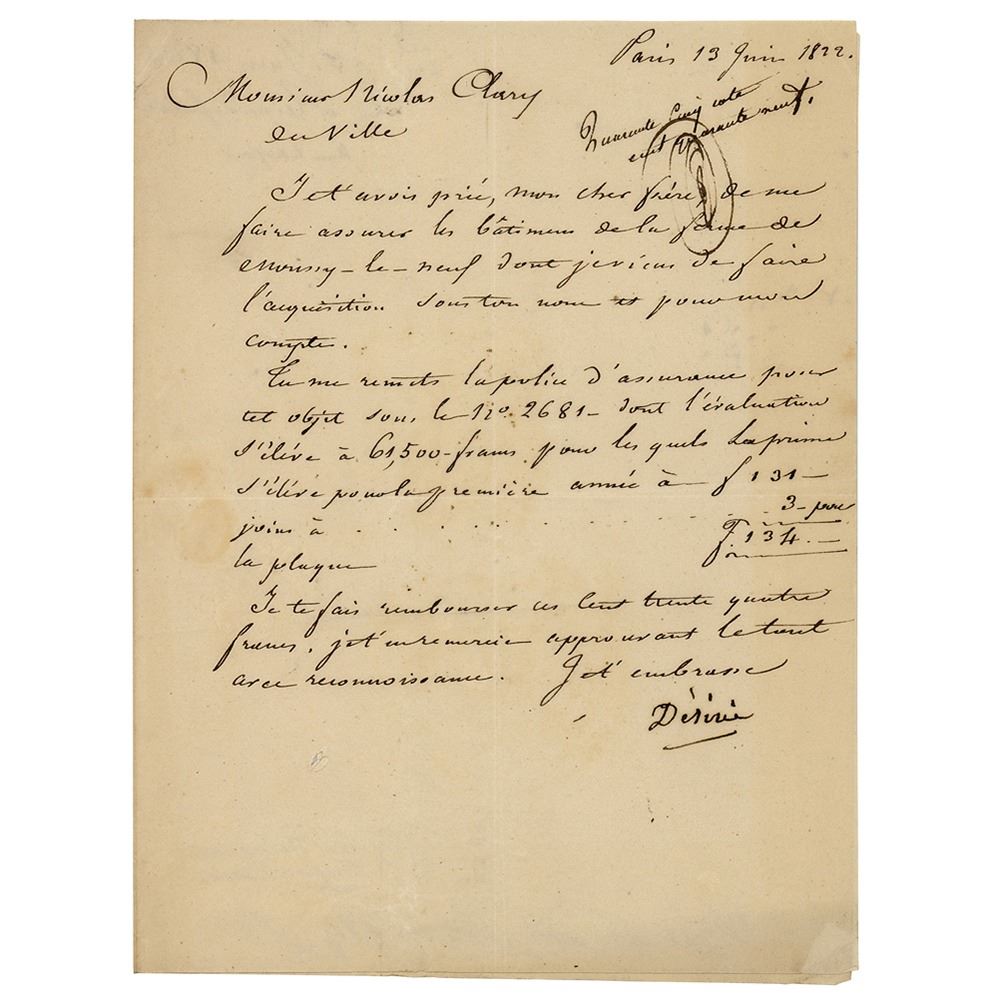 Paris 13 Juin 1822.
Monsieur Nicolas Clary
En Ville
Quarante Cinq cote
cent quarante neuf.
Je t'avois prié, mon cher frère, de me
faire assurer les bâtimens de la ferme de
Moussy-le-neuf dont je viens de faire
l'acquisition sous ton nom et pour mon
compte.
Tu me remets la police d'assurance pour
cet objet sous le No. 2681- dont l'évaluation
s'élève à 61,500-francs pour les quels La prime
s'élève pour la première année à - f 131 -
3 - pour
joins à . . . . . . . . . . . F 134. -
la plaque
Je te fais rembourser ces Cent trente quatre
francs, je t'en remercie approuvant le tout
avec reconnoissance. Je t'embrasse
Désirée